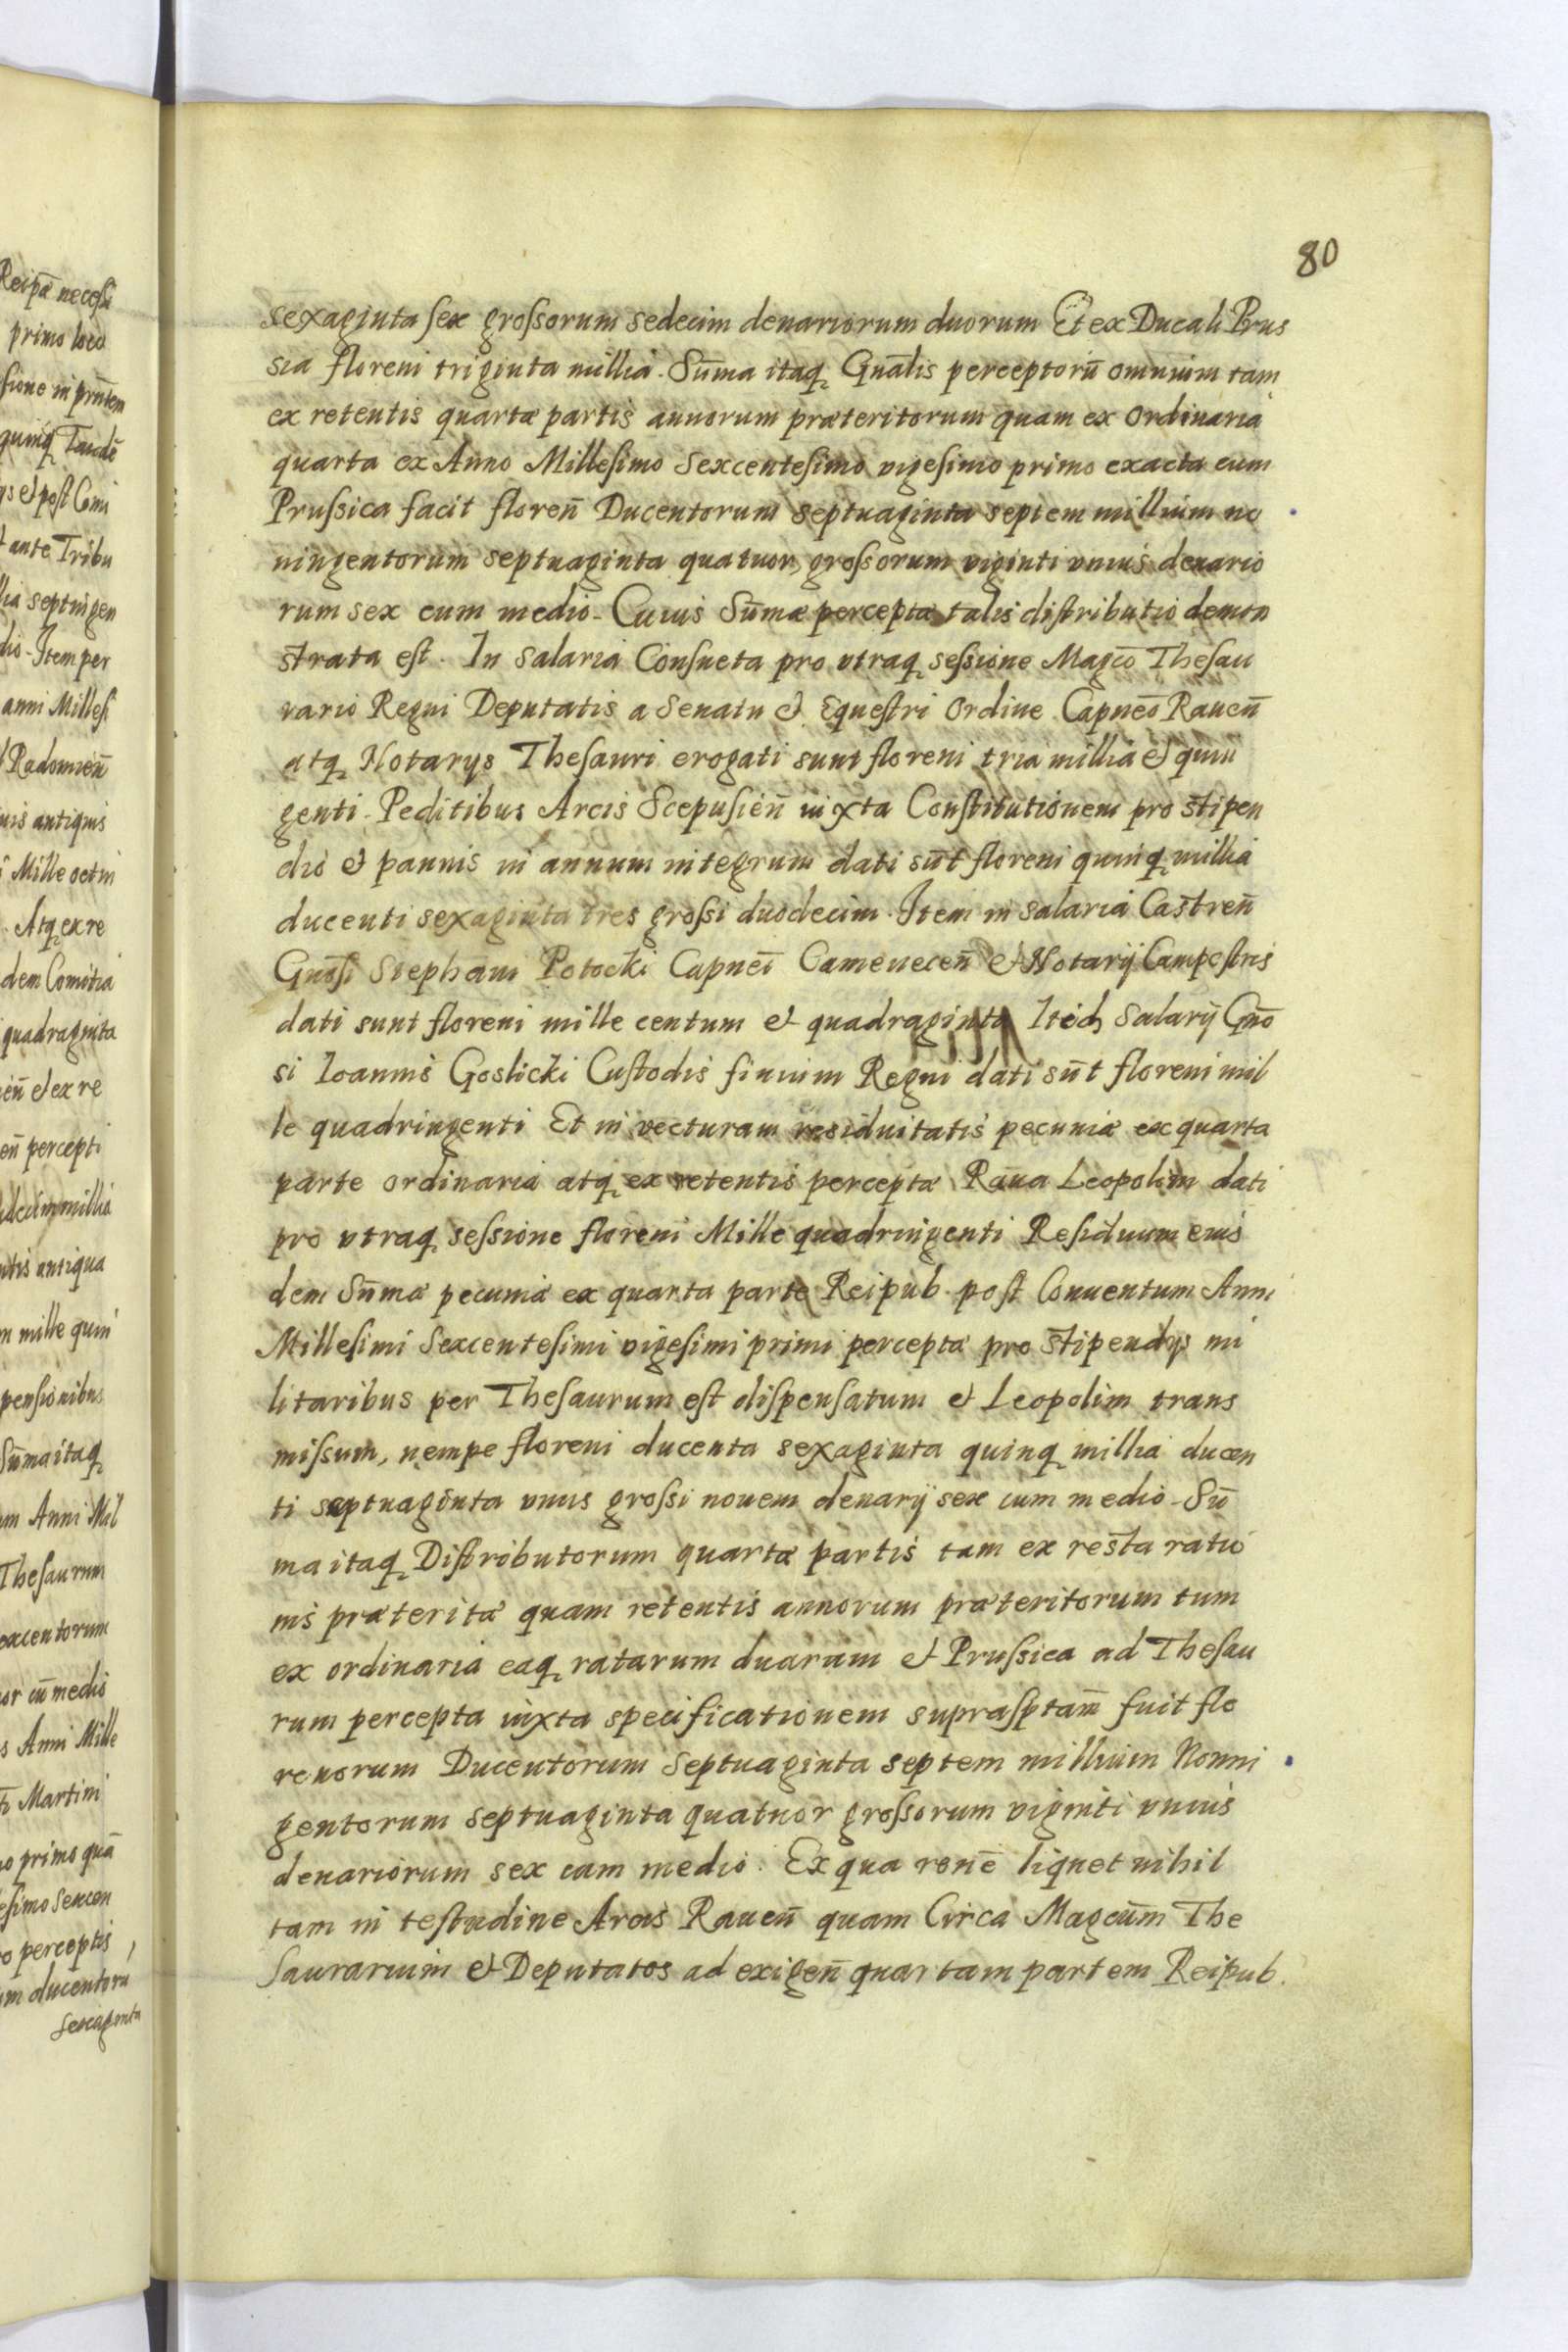 80
sexaginta sex grossorum sedecim denariorum duorum Et ex Ducali Prus
sia floreni triginta millia. Sūma itaq Gnālis perceptorū omnium tam
ex retentis quartæ partis annorum præteritorum quam ex ordinaria
quarta ex Anno Millesimo Sexcentesimo vigesimo primo exacta cum
Prussica facit floreñ Ducentorum septuaginta septem millium no
ningentorum septuaginta quatuor, grossorum viginti unius denario
rum sex cum medio. Cuius Sūmæ perceptæ talis distributio demon
strata est. In Salaria Consueta pro utraq sessione Magco Thesau
rario Regni Deputatis a Senatu et Equestri Ordine Capneo Raveñ
atq Notarys Thesauri erogati sunt floreni tria millia et quin
genti. Peditibus Arcis Scepusieñ iuxta Constitutionem pro stipen
dio et pannis in annum integrum dati sūt floreni quinq millia
ducenti sexaginta tres grossi duodecim. Item in salaria Castreñ
Gnōsi Stephani Potocki Capnei Cameneceñ et Notarij Campestris
dati sunt floreni mille centum et quadraginta Salarij Gño
si Ioannis Goslicki Custodis finium Regni dati sūt floreni mil
le quadringenti Et in vecturam residuitatis pecuniæ ex quarta
parte ordinaria atq ex retentis perceptæ Rava Leopolim dati
pro utraq sessione floreni Mille quadringenti Residuum eius
dem Sūmæ pecuniæ ex quarta parte Reipub. post Conventum Anni
Millesimi Sexcentesimi vigesimi primi perceptæ pro stipendys mi
litaribus per Thesaurum est dispensatum et Leopolim trans
missum, nempe floreni ducenta sexaginta quinq millia ducen
ti septuaginta unus grossi novem denarij sex cum medio. Sū
ma itaq Distributorum quartæ partis tam ex resta ratio
nis præteritæ quam retentis annorum præteritorum tum
ex ordinaria eaq ratarum duarum et Prussica ad Thesau
rum percepta iuxta specificationem suprasptam̄ fuit flo
renorum Ducentorum Septuaginta septem millium Nonni
gentorum septuaginta quatuor grossorum viginti unius
denariorum sex cum medio. Ex qua rone liquet nihil
tam in testudine Arcis Raveñ quam Circa Magcum The
saurarium et Deputatos ad exigeñ quartam partem Reipub.